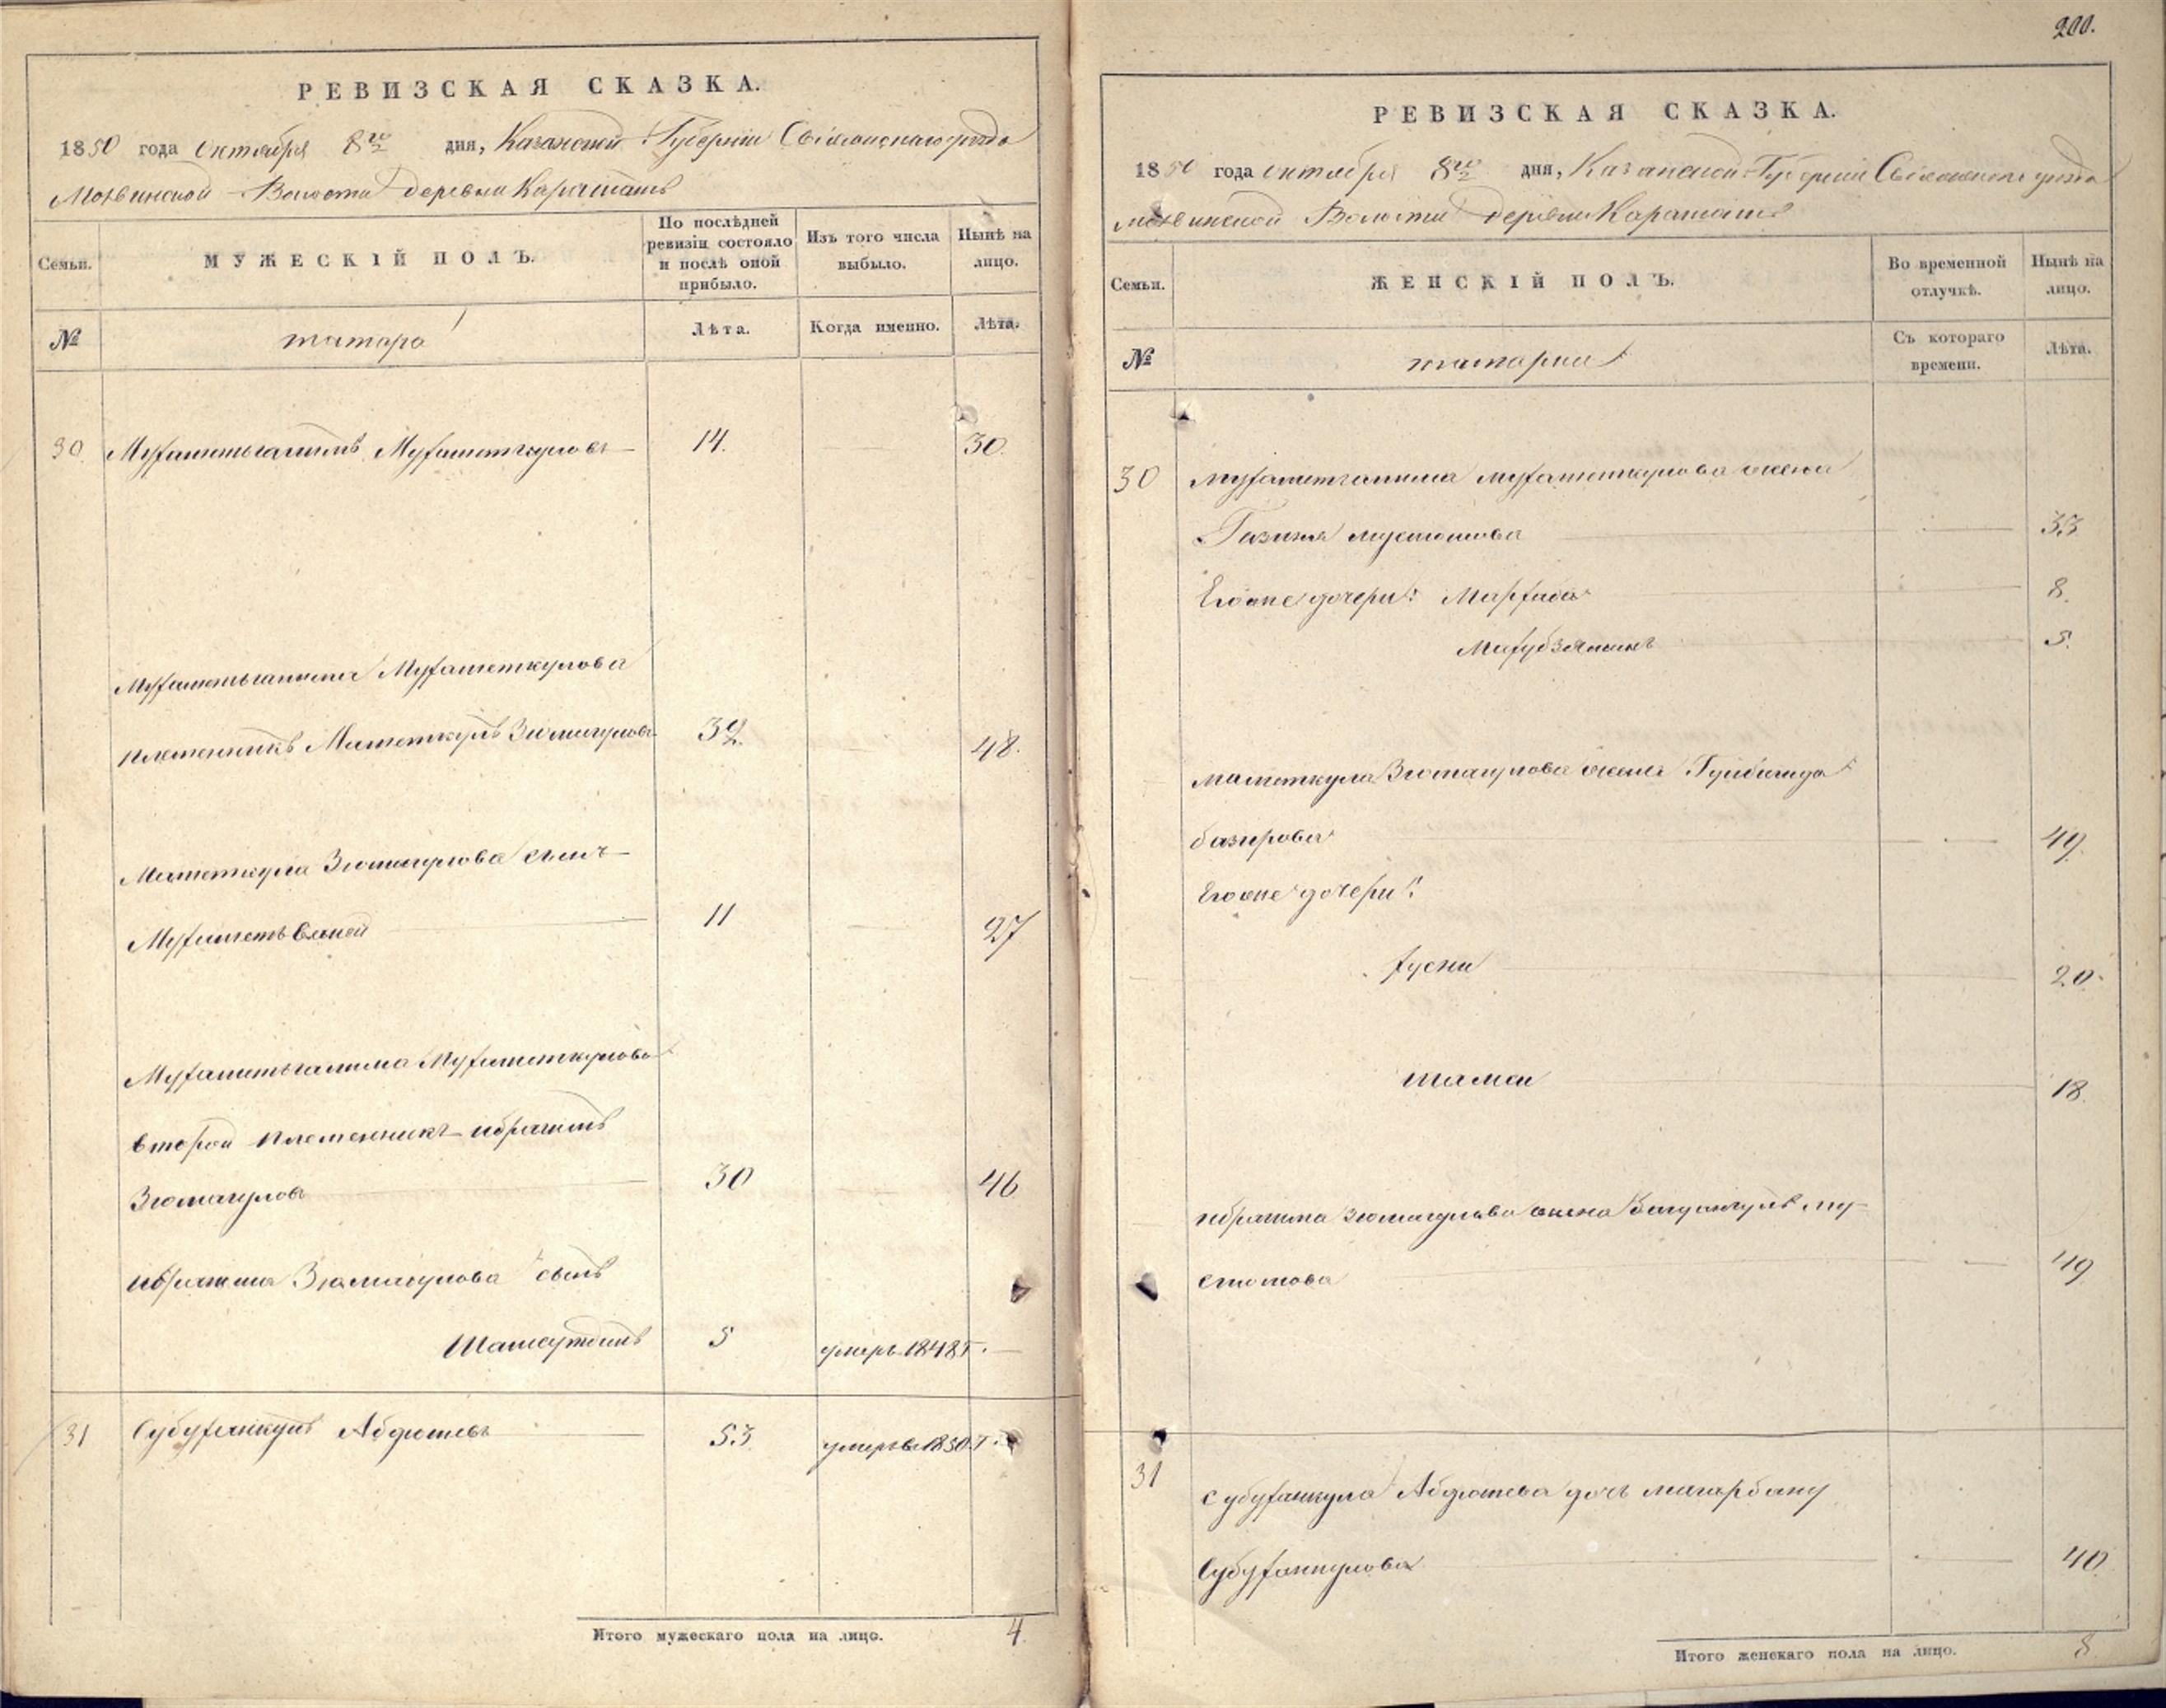 РЕВИЗСКАЯ СКАЗКА.
1850 года Октября 8го дня, Казанской Губернии Свіяжскаго уезда
Волости деревни Караталъ
Семьи.
МУЖЕСКІЙ ПОЛЪ.
По послѣдней ревизіи состояло и послѣ оной прибыло.
Изъ того числа выбыло.
Нынѣ на лицо.
№
татара
Лѣта.
Когда именно.
Лѣта.
30 Мухаметьгалимъ Мухаметкуловъ 14. 30.
Мухаметьгалима Мухаметкулова
племенникъ Маметкулъ Зюмагуловъ 32. 48.
Маметкула Зюмагулова сынъ
Мухаметь Вялей 11 27
Мухаметьгалима Мухаметкулова
второй племенникъ ибрагимъ
Зюмагуловъ 30 46
ибрагима Зюмагулова сынъ
Шамсутдинъ 5 умеръ 1848 г.
31 Субуханкулъ Абдюшевъ 53 умеръ 1850 г.
Итого мужескаго пола на лицо. 4
200.
РЕВИЗСКАЯ СКАЗКА.
1850 года октября 8го дня, Казанской Губерніи Свіяжскаго уезда
Волости деревни Караталъ
Семьи.
ЖЕНСКІЙ ПОЛЪ.
Во временной отлучкѣ.
Нынѣ на лицо.
№
татарки
Съ котораго времени.
Лѣта.
30 мухаметгалима мухаметкулова жена
33
Егоже дочери: Марфаба 8.
Махубзяманъ 5.
маметкула Зюмагулова жена
базирова 49.
Егоже дочери:
хусни 20.
шамси 18.
ибрагима зюмагулова жена му-
49
31
субуханкула Абдюшева дочь магарбану
Субуханкулова 40
Итого женскаго пола на лицо. 8